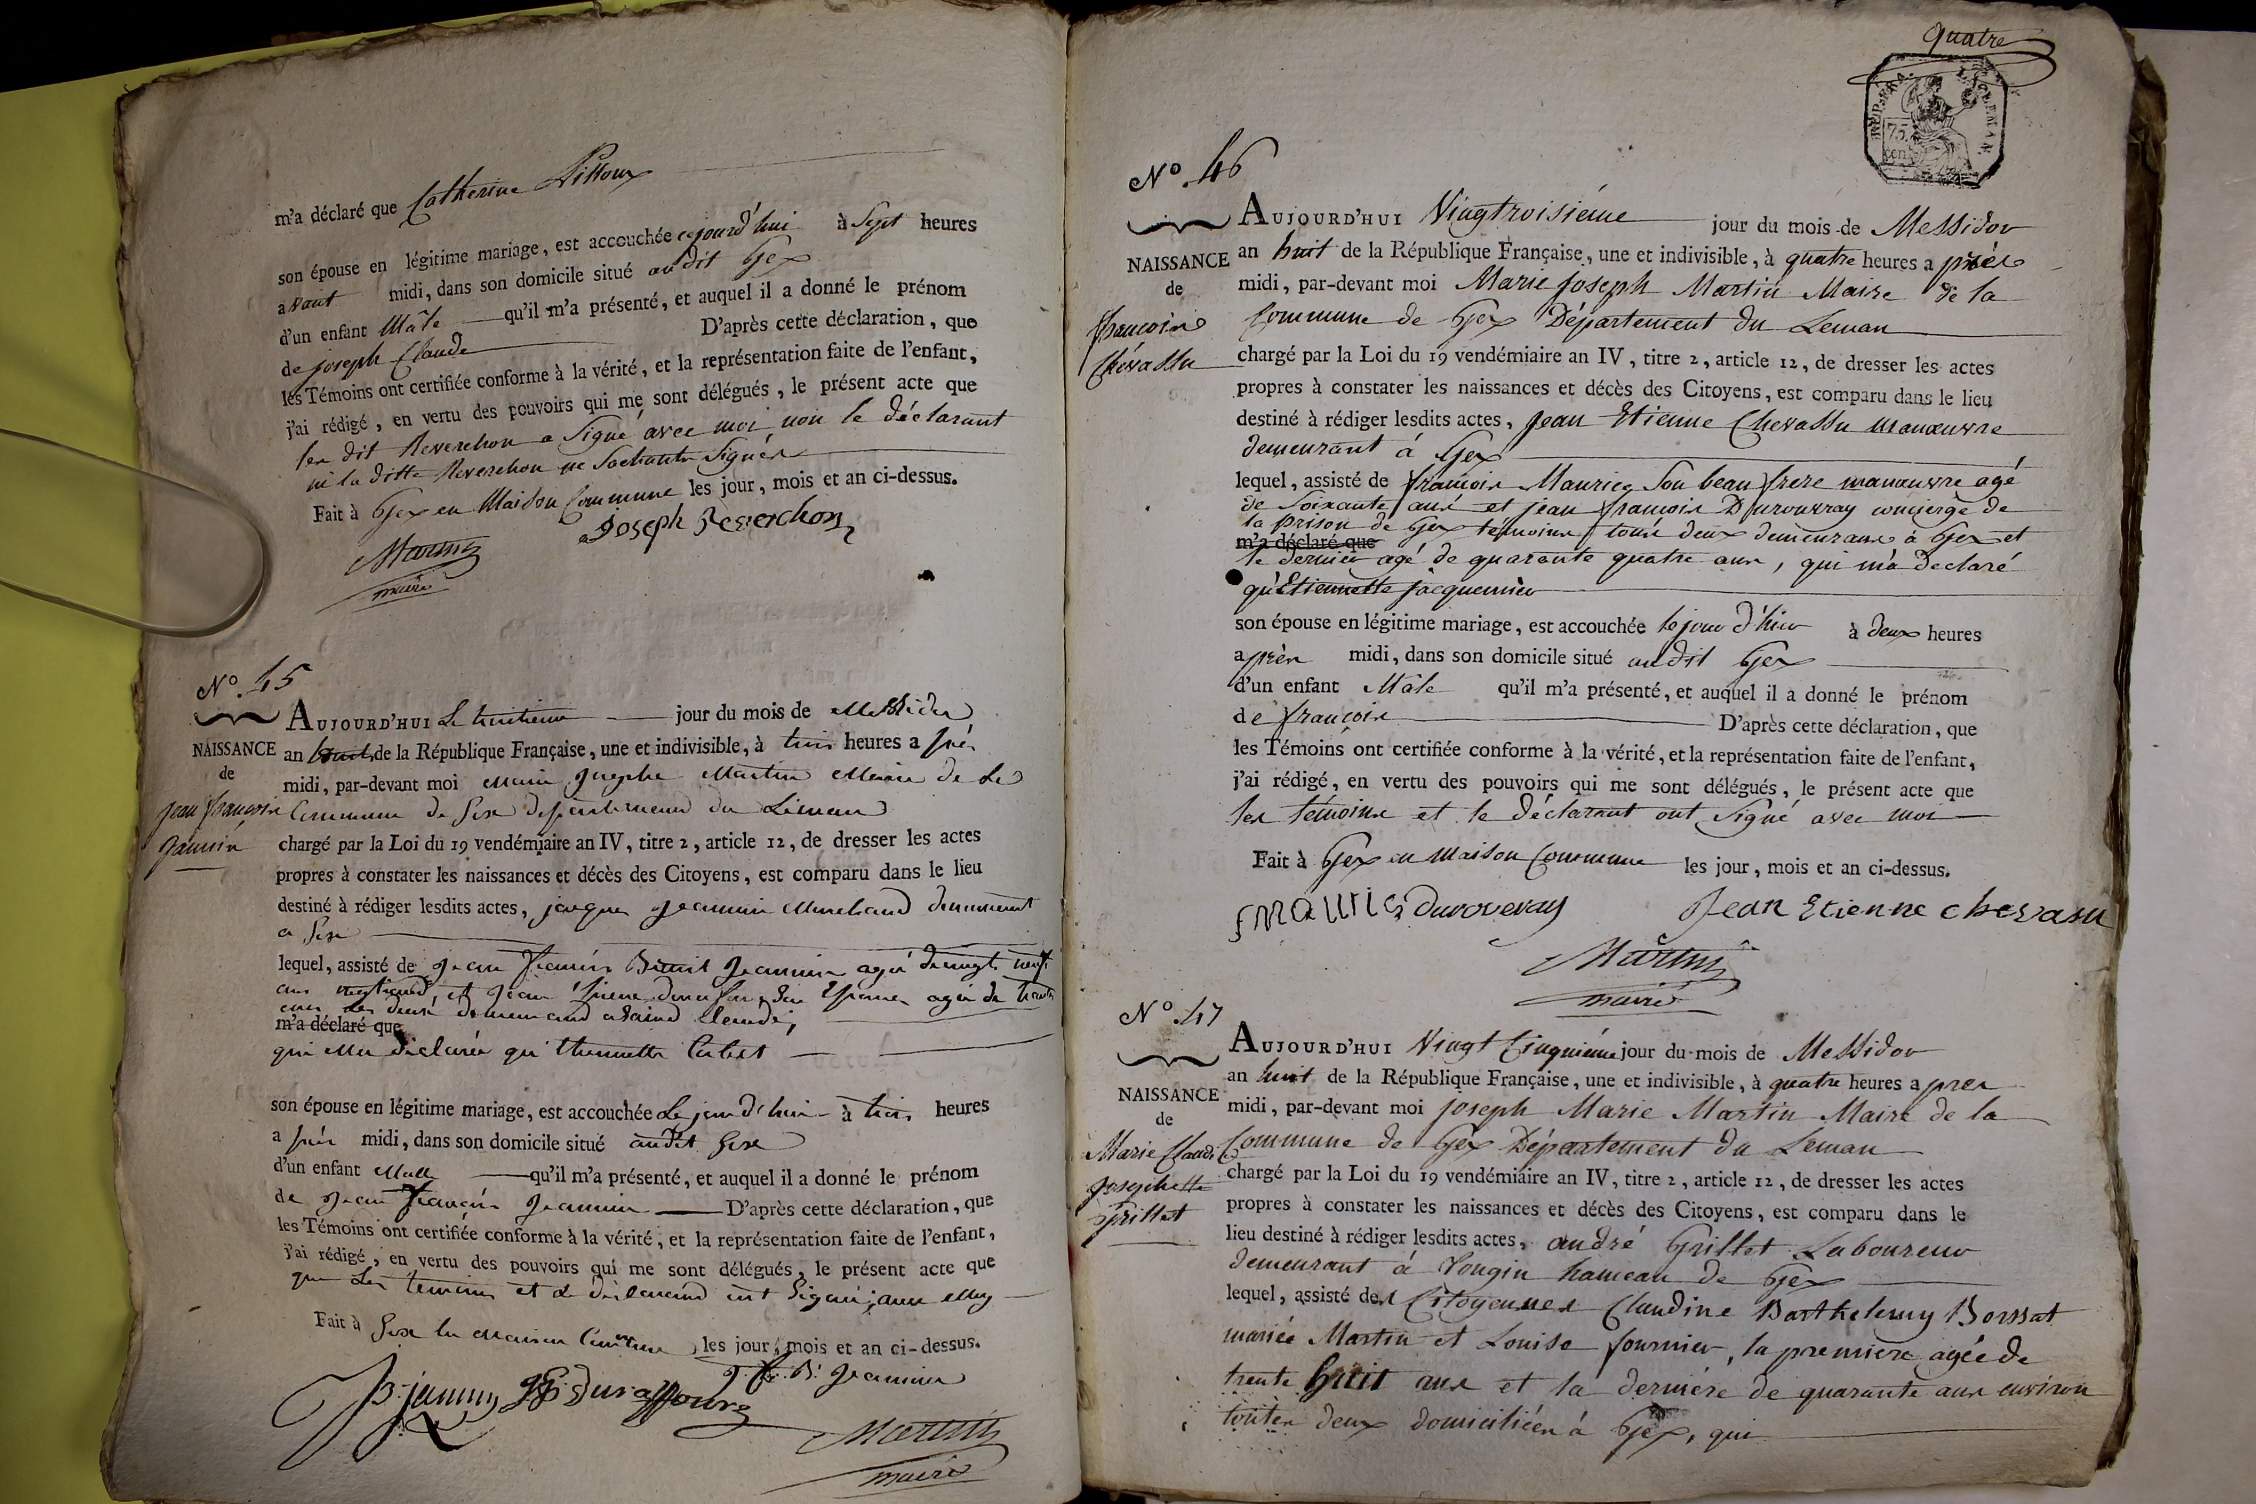 m'a déclaré que Catherine Pissoux
son épouse en légitime mariage, est accouchée cejourd'hui à Sept heures
avant midi, dans son domicile situé audit Gex
d'un enfant Mâle qu'il m'a présenté, et auquel il a donné le prénom
de joseph Claude D'après cette déclaration, que
les Témoins ont certifiée conforme à la vérité, et la représentation faite de l'enfant,
j'ai rédigé, en vertu des pouvoirs qui me sont délégués, le présent acte que
dit Reverchon a Signé avec moi non le déclarant
ni la ditte Reverchon ne Sachants Signér
Fait à Gex en Maison Commune les jour, mois et an ci-dessus.
Joseph Reverchon
Martin
maire
No. 45
AUJOURD'HUI Le huitieme jour du mois de Messidor
NAISSANCE
de
jean francois
Jannin
an huit de la République Française, une et indivisible, à trois heures a près
midi, par-devant moi Marie Josephe Martin Maire de La
Commune de Gex departement du Léman
chargé par la Loi du 19 vendémiaire an IV, titre 2, article 12, de dresser les actes
propres à constater les naissances et décès des Citoyens, est comparu dans le lieu
destiné à rédiger lesdits actes, jacques Jeannin Marchand demeurent
a Gex
lequel, assisté de Jean francois Benoit Jeannin agé de vingt neuf
ans et Jean agé de trente
ans Les deux demeurand a Saind Claude,
m'a déclaré que
qui Ma déclarée qu'thiennette
son épouse en légitime mariage, est accouchée Le jourd'hui à trois heures
a près midi, dans son domicile situé audit Gex
d'un enfant Malle qu'il m'a présenté, et auquel il a donné le prénom
de Jean francois Jeannin D'après cette déclaration, que
les Témoins ont certifiée conforme à la vérité, et la représentation faite de l'enfant,
j'ai rédigé, en vertu des pouvoirs qui me sont délégués, le présent acte que
que Les temoins et Le déclarend ont Signé avec Moy
Fait à Gex en Maison Commune les jour, mois et an ci-dessus.
J. f. B. Jeannin
Martin
maire
quatre
RÉP. FRA.
75
cen
No. 46
AUJOURD'HUI Vingtroisiéme jour du mois de Messidor
NAISSANCE
de
francois
Chevassu
an huit de la République Française, une et indivisible, à quatre heures a près
midi, par-devant moi Marie joseph Martin Maire de la
Commune de Gex Département du Leman
chargé par la Loi du 19 vendémiaire an IV, titre 2, article 12, de dresser les actes
propres à constater les naissances et décès des Citoyens, est comparu dans le lieu
destiné à rédiger lesdits actes, jean Etienne Chevassu manœuvre
demeurant à Gex
lequel, assisté de francois Maurice Son beau frere manœuvre agé
de Soixante ans et jean francois Durouvray concierge de
la prison de Gex temoins tous deux demeurans à Gex et
m'a déclaré que
le dernier agé de quarante quatre ans, qui m'a declaré
qu'Etiennette jacquemier
son épouse en légitime mariage, est accouchée le jour d'hier à deux heures
après midi, dans son domicile situé audit Gex
d'un enfant Mâle qu'il m'a présenté, et auquel il a donné le prénom
de francois D'après cette déclaration, que
les Témoins ont certifiée conforme à la vérité, et la représentation faite de l'enfant,
j'ai rédigé, en vertu des pouvoirs qui me sont délégués, le présent acte que
les témoins et le déclarant ont Signé avec moi
Fait à Gex en Maison Commune les jour, mois et an ci-dessus.
f mauric durouvray Jean Etienne chevasu
Martin
maire
No. 47
AUJOURD'HUI Vingt Cinquiéme jour du mois de Messidor
NAISSANCE
de
Marie Claude
Josephette
Grillet
an huit de la République Française, une et indivisible, à quatre heures a pres
midi, par-devant moi joseph Marie Martin Maire de la
Commune de Gex Département du Leman
chargé par la Loi du 19 vendémiaire an IV, titre 2, article 12, de dresser les actes
propres à constater les naissances et décès des Citoyens, est comparu dans le
lieu destiné à rédiger lesdits actes, andré Grillet Laboureur
demeurant à Tougin hameau de Gex
lequel, assisté des Citoyennes Claudine Barthelemy Borssat
mariée Martin et Louise fournier, la premiere agée de
trente huit ans et la derniére de quarante ans environ
toutes deux domiciliées à Gex, qui